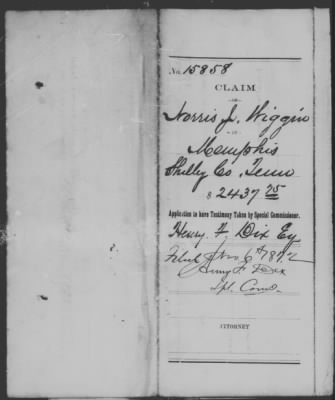 No. 15858
CLAIM
OF
Norris J. Wiggin
IN
Memphis
Shelby Co. Tenn
$ 2437 75
Application to have Testimony Taken by Special Commissioner.
Henry. F. Dix Esq
Filed Nov 6th 1872
Henry F. Dix
Spl. Com.
ATTORNEY